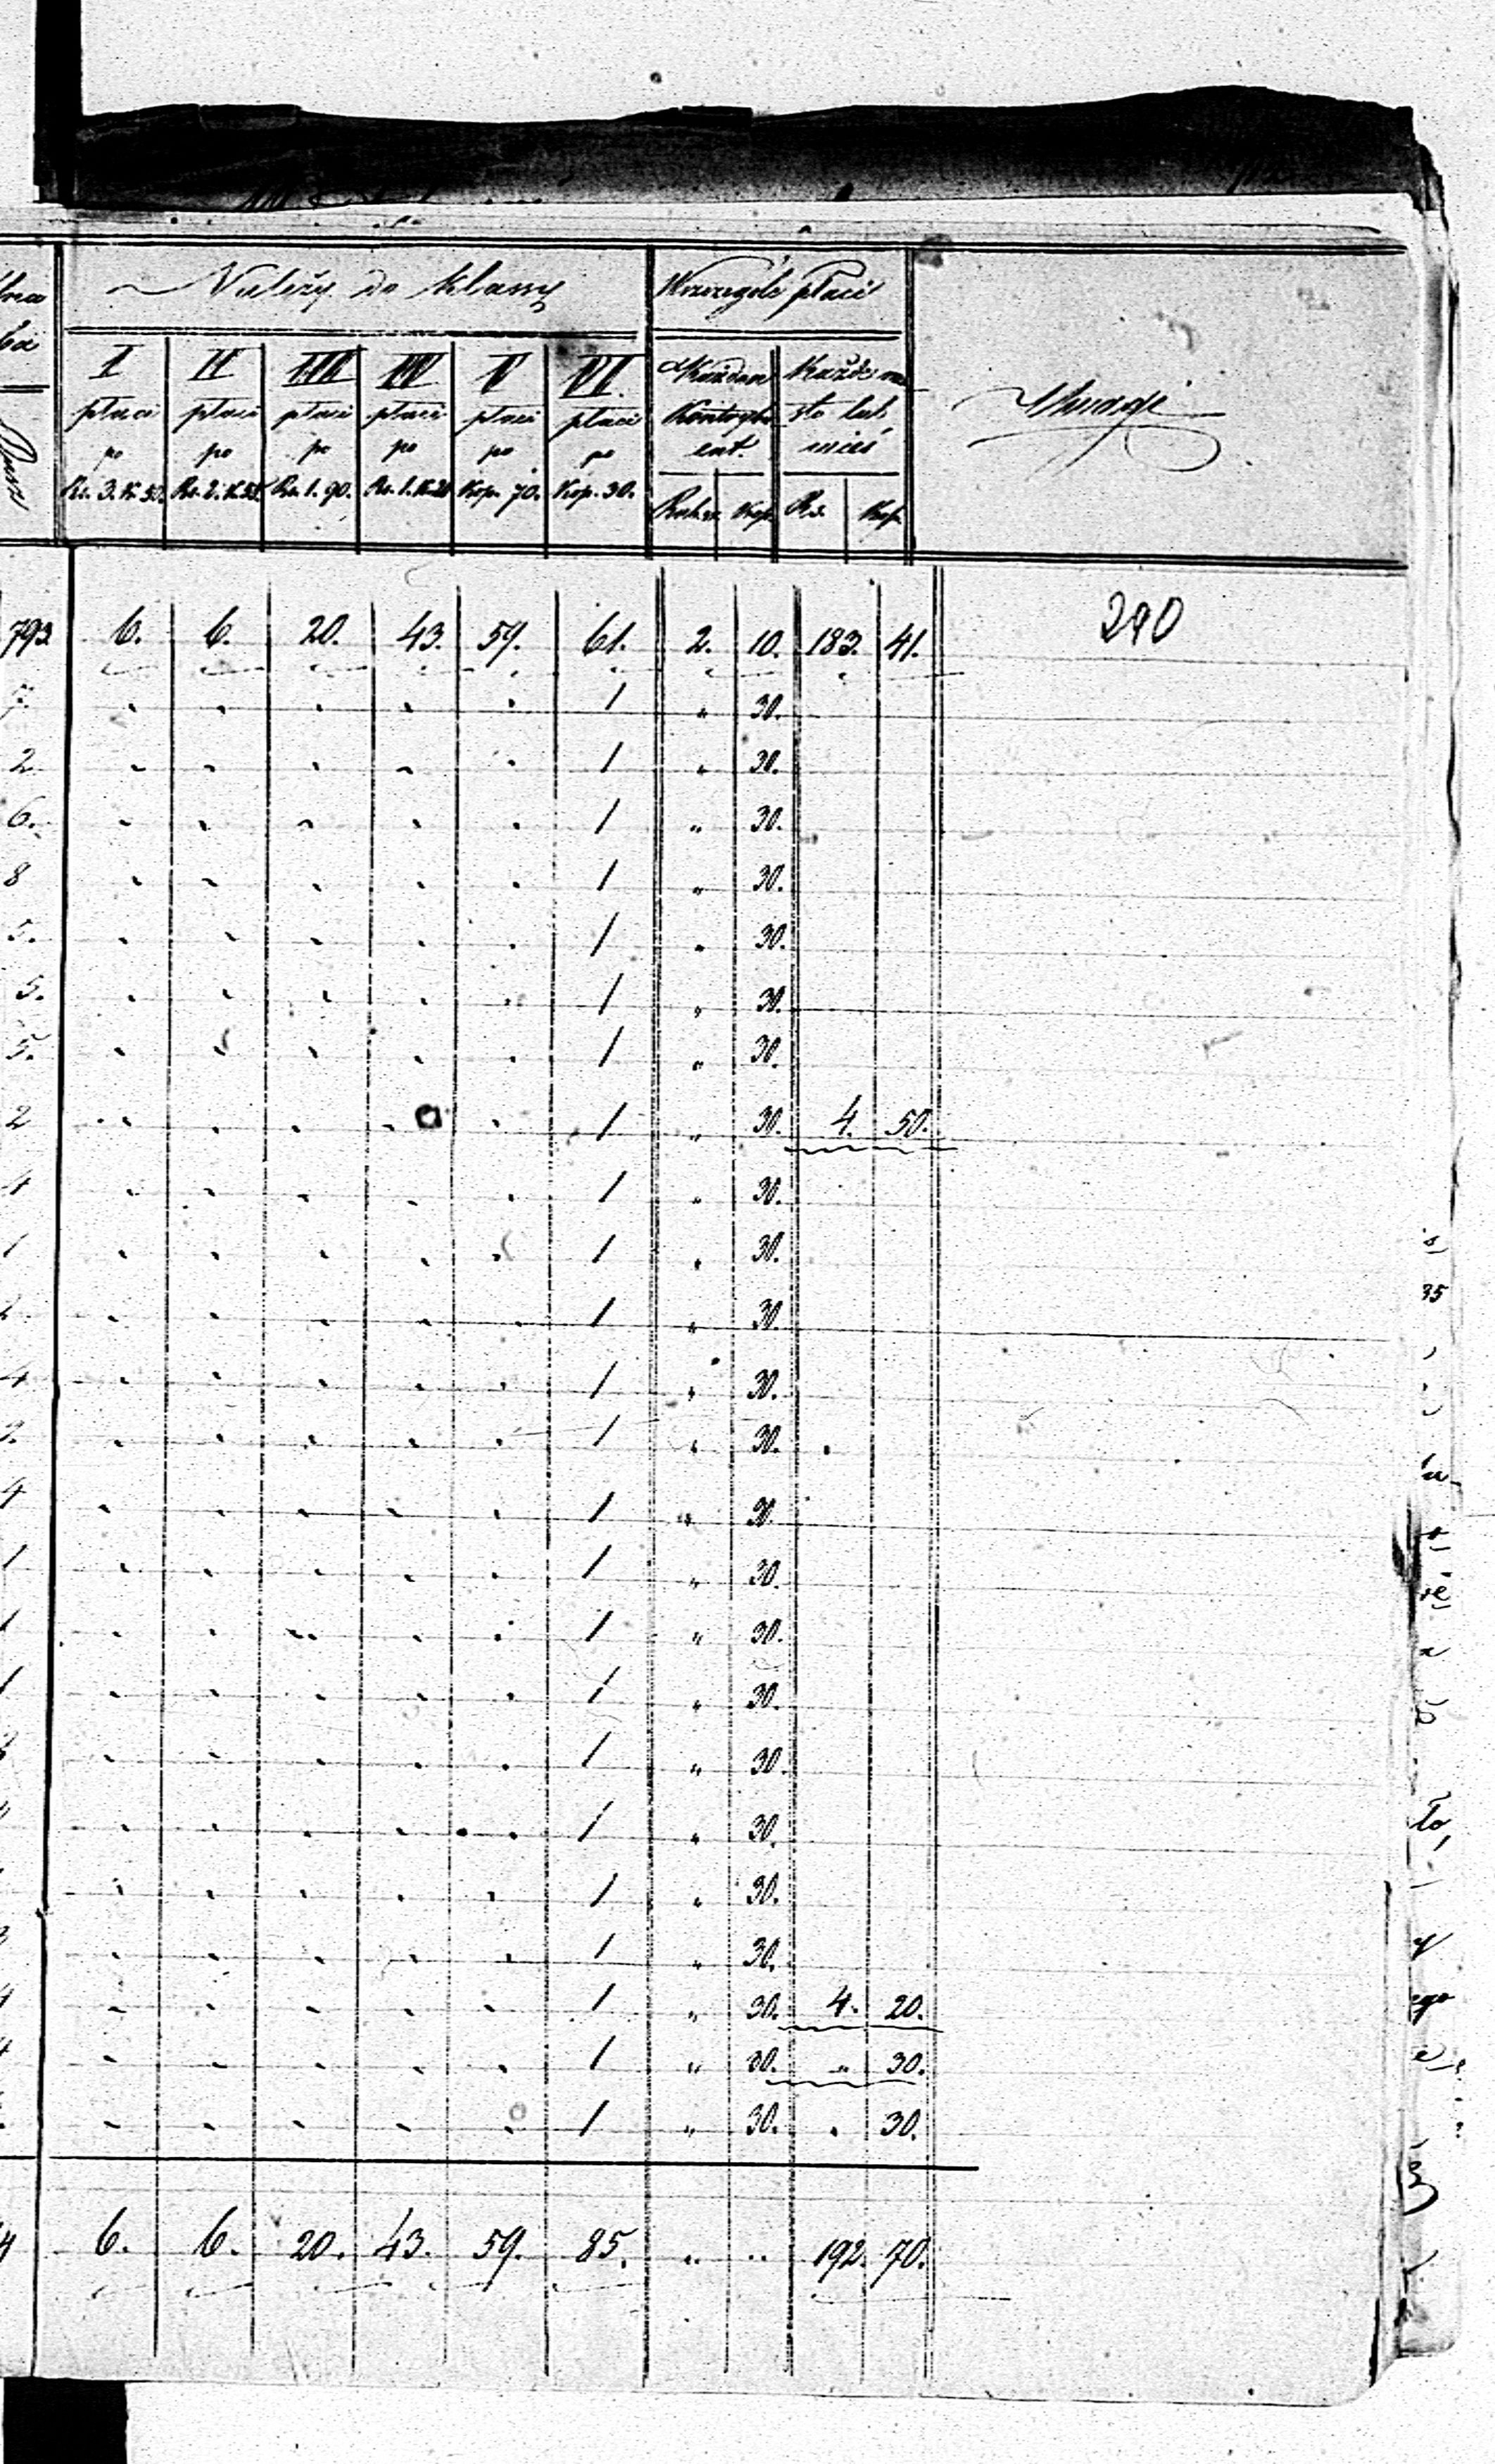 Należy do klassy
W szczególe płaci
Uwagi
I II III IV V VI.
płaci płaci płaci płaci płaci płaci
po po po po po po
Rs. 3. K. 50. Rs. 2. K. Rs. 1. 90. Rs. 1. K. 20 Kop. 70. Kop. 30.
Każden Kontrybuent. Rub. sr. Kop.
Każde miasto lub wieś Rs. Kop.
290
793 6. 6. 20. 43. 59. 61. 2. 10. 183. 41.
7. 1 " 30.
2 1 " 30.
6. 1 " 30.
8 1 " 30.
5. 1 " 30.
5. 1 " 30.
5. 1 " 30.
2 1 " 30. 4. 50.
4 1 " 30.
1 1 " 30.
1 " 30.
4 1 " 30.
1 " 30.
4 1 " 30.
1 1 " 30.
1 1 " 30.
1 1 " 30.
1 " 30.
1 " 30.
1 " 30.
1 " 30.
4 1 " 30. 4. 20.
4 1 " 30. " 30.
1 " 30. " 30.
4 6. 6. 20. 43. 59. 85. " " 192. 70.